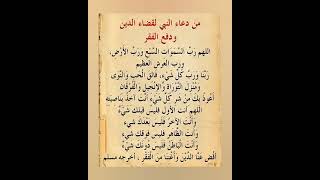 من دعاء النبي لقضاء الدين
ودفع الفقر
اللهم رَبَّ السَّمَوَاتِ السَّبْعِ وَرَبَّ الأَرْضِ،
وَرَبَّ العَرْشِ العَظِيمِ
رَبَّنَا وَرَبَّ كُلِّ شَيْءٍ، فَالِقَ الْحَبِّ وَالنَّوَى
وَمُنْزِلَ التَّوْرَاةِ وَالإِنْجِيلِ وَالْفُرْقَانِ
أَعُوذُ بِكَ مِنْ شَرِّ كُلِّ شَيْءٍ أَنْتَ آخِذٌ بِنَاصِيَتِهِ
اللَّهُمَّ أَنْتَ الأَوَّلُ فَلَيْسَ قَبْلَكَ شَيْءٌ
وَأَنْتَ الآخِرُ فَلَيْسَ بَعْدَكَ شَيْءٌ
وَأَنْتَ الظَّاهِرُ فَلَيْسَ فَوْقَكَ شَيْءٌ
وَأَنْتَ الْبَاطِنُ فَلَيْسَ دُونَكَ شَيْءٌ
اقْضِ عَنَّا الدَّيْنَ وَأَغْنِنَا مِنَ الْفَقْرِ . أخرجه مسلم